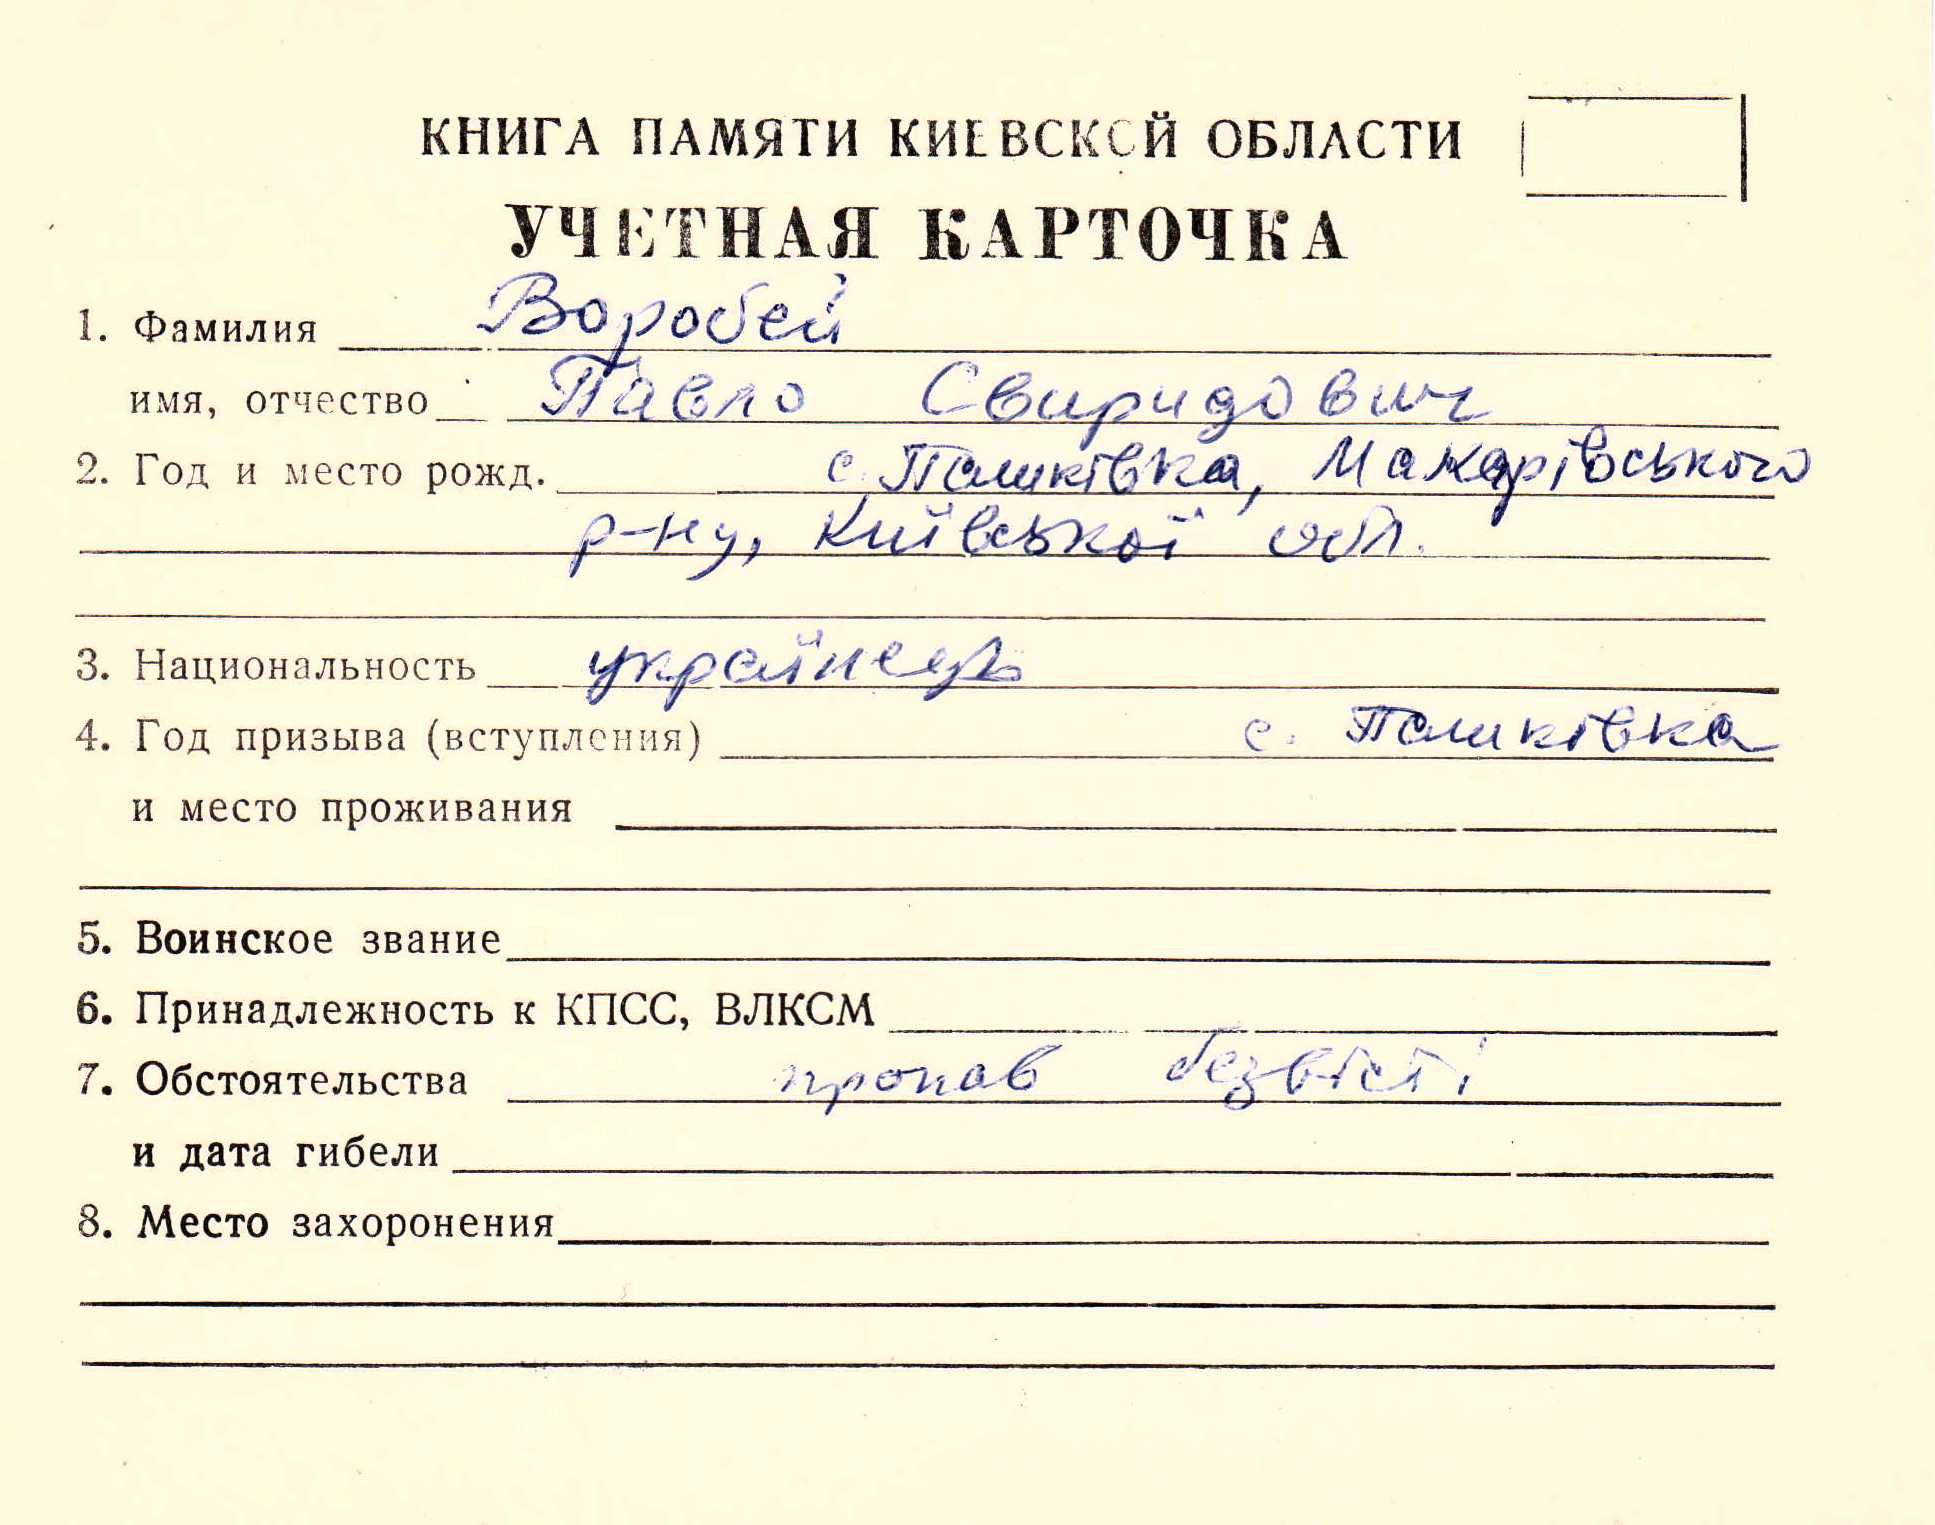 КНИГА ПАМЯТИ КИЕВСКОЙ ОБЛАСТИ
УЧЕТНАЯ КАРТОЧКА
1. Фамилия Воробей
имя, отчество Павло Свиридович
2. Год и место рожд. с. Пашківка, Макарівського
р-ну, Київської обл.
3. Национальность українець
4. Год призыва (вступления) с. Пашківка
и место проживания
5. Воинское звание
6. Принадлежность к КПСС, ВЛКСМ
7. Обстоятельства пропав безвісті
и дата гибели
8. Место захоронения